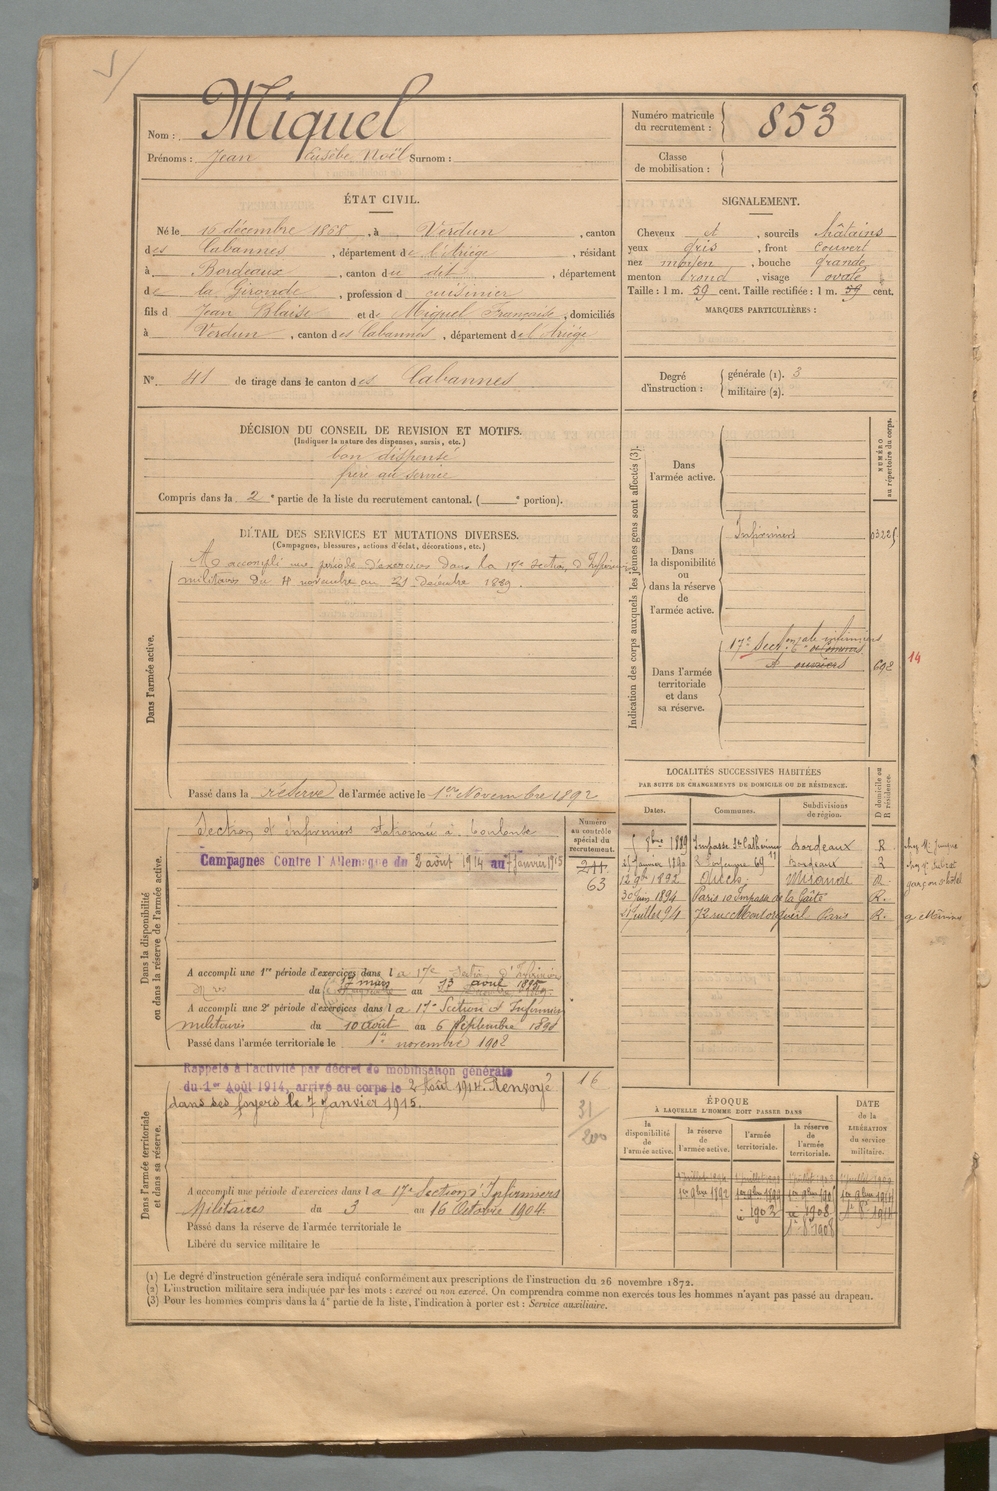 Nom : Miquel
Prénoms : Jean Eusèbe Noël Surnom :
Numéro matricule du recrutement : 853
Classe de mobilisation :
ÉTAT CIVIL.
Né le 16 décembre 1868, à Verdun, canton
des Cabannes, département de l'Ariège, résidant
à Bordeaux, canton du dit, département
de la Gironde, profession de cuisinier
fils d Jean Blaise et de Miquel Françoise, domiciliés
à Verdun, canton des Cabannes, département de l'Ariège
N° 41 de tirage dans le canton des Cabannes
SIGNALEMENT.
Cheveux et, sourcils châtains
yeux gris, front couvert
nez moyen, bouche grande
menton rond, visage ovale
Taille : 1 m. 59 cent. Taille rectifiée : 1 m. 59 cent.
MARQUES PARTICULIÈRES :
Degré d'instruction : générale (1). 3
militaire (2).
DÉCISION DU CONSEIL DE REVISION ET MOTIFS.
(Indiquer la nature des dispenses, sursis, etc.)
bon dispensé
frère au service
Compris dans la 2e partie de la liste du recrutement cantonal. ( e portion).
DÉTAIL DES SERVICES ET MUTATIONS DIVERSES.
(Campagnes, blessures, actions d'éclat, décorations, etc.)
Dans l'armée active.
A accompli une période d'exercices dans la 17e Section d'Infirmiers
militaires du 4 novembre au 21 décembre 1889.
Passé dans la réserve de l'armée active le 1er Novembre 1892
Indication des corps auxquels les jeunes gens sont affectés (3).
NUMÉRO au répertoire du corps.
Dans l'armée active.
Dans la disponibilité ou dans la réserve de l'armée active.
Infirmiers
Dans l'armée territoriale et dans sa réserve.
17e Sect.
et ouvriers
692
14
Dans la disponibilité ou dans la réserve de l'armée active.
Section d'infirmiers stationnée à Toulouse
Campagnes Contre l'Allemagne du 2 août 1914 au 7 Janvier 1915
Numéro au contrôle spécial du recrutement.
211
63
A accompli une 1re période d'exercices dans la 17e Section d'Infirmiers
du 17 mars au 13 avril 1895
A accompli une 2e période d'exercices dans la 17e Section d'Infirmiers
militaires du 10 août au 6 Septembre 1898
Passé dans l'armée territoriale le 1er novembre 1902
Dans l'armée territoriale et dans sa réserve.
Rappelé à l'activité par décret de mobilisation générale
du 1er Août 1914, arrivé au corps le 2 Août 1914. Renvoyé
dans ses foyers le 7 Janvier 1915.
16
31/200
A accompli une période d'exercices dans la 17e Section d'Infirmiers
Militaires du 3 au 16 Octobre 1904
Passé dans la réserve de l'armée territoriale le
Libéré du service militaire le
LOCALITÉS SUCCESSIVES HABITÉES
PAR SUITE DE CHANGEMENTS DE DOMICILE OU DE RÉSIDENCE.
Dates. Communes. Subdivisions de région. D domicile ou R résidence.
8bre 1889 Impasse Ste Catherine Bordeaux R
Janvier 1890 69 Bordeaux R
12 9bre 1892 Auch Mirande R
30 Juin 1894 Paris 10 Impasse de la Gaîté R.
Juillet 94 72 rue Montorgueil Paris R.
garçon d'hôtel
ÉPOQUE
À LAQUELLE L'HOMME DOIT PASSER DANS
la disponibilité de l'armée active.
la réserve de l'armée active.
l'armée territoriale.
la réserve de l'armée territoriale.
DATE de la LIBÉRATION du service militaire.
1er 9bre 1892
1902
1908
1908
(1) Le degré d'instruction générale sera indiqué conformément aux prescriptions de l'instruction du 26 novembre 1872.
(2) L'instruction militaire sera indiquée par les mots : exercé ou non exercé. On comprendra comme non exercés tous les hommes n'ayant pas passé au drapeau.
(3) Pour les hommes compris dans la 4e partie de la liste, l'indication à porter est : Service auxiliaire.